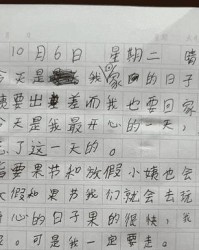 10月6日 星期二
今天是我家的日子
要出差而我也要回家
今天是我最开心的一天，
忘了这一天的。
要果节和放假小姨也会
大假和果节我们就会去玩
开心的日子果的很快，我
。可是我一定要走。